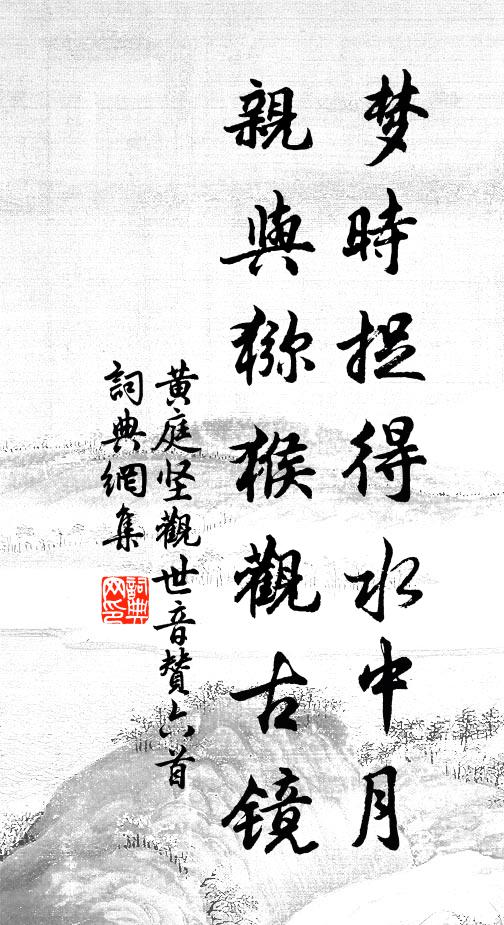 梦時捉得水中月
親與猕猴觀古镜
黄庭坚觀世音赞六首
詞典網集
詞典网印